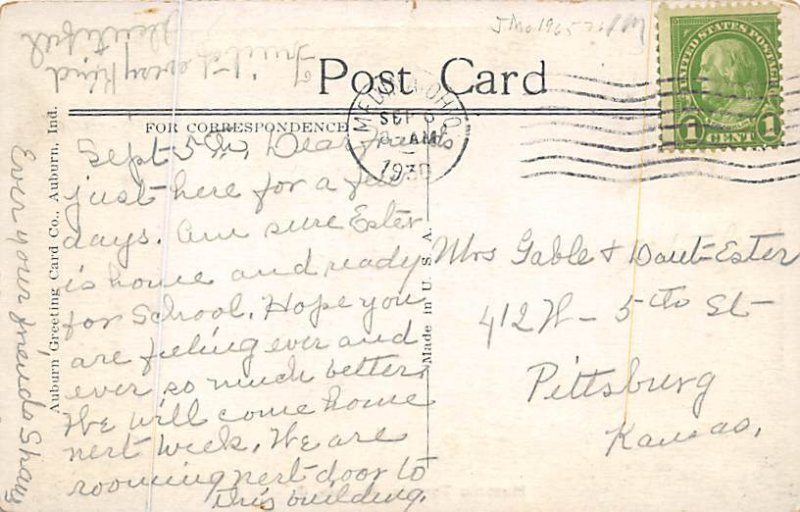 J Mo 1965
Post Card
FOR CORRESPONDENCE
UNITED STATES POSTAGE
1 CENT 1
MEDINA OHIO
SEP 6
AM
1930
Sept 5th, Dear Friends
just here for a few
days. Am sure Ester
is home and ready
for School. Hope you
are feeling ever and
ever so much better.
We will come home
next week. We are
rooming next door to
this building.
Fruit
every kind
plentiful
Ever your friends Shaw
Auburn Greeting Card Co., Auburn, Ind.
Made in U. S. A.
Mrs Gable + Ester
412 W - 5th St
Pittsburg
Kansas.